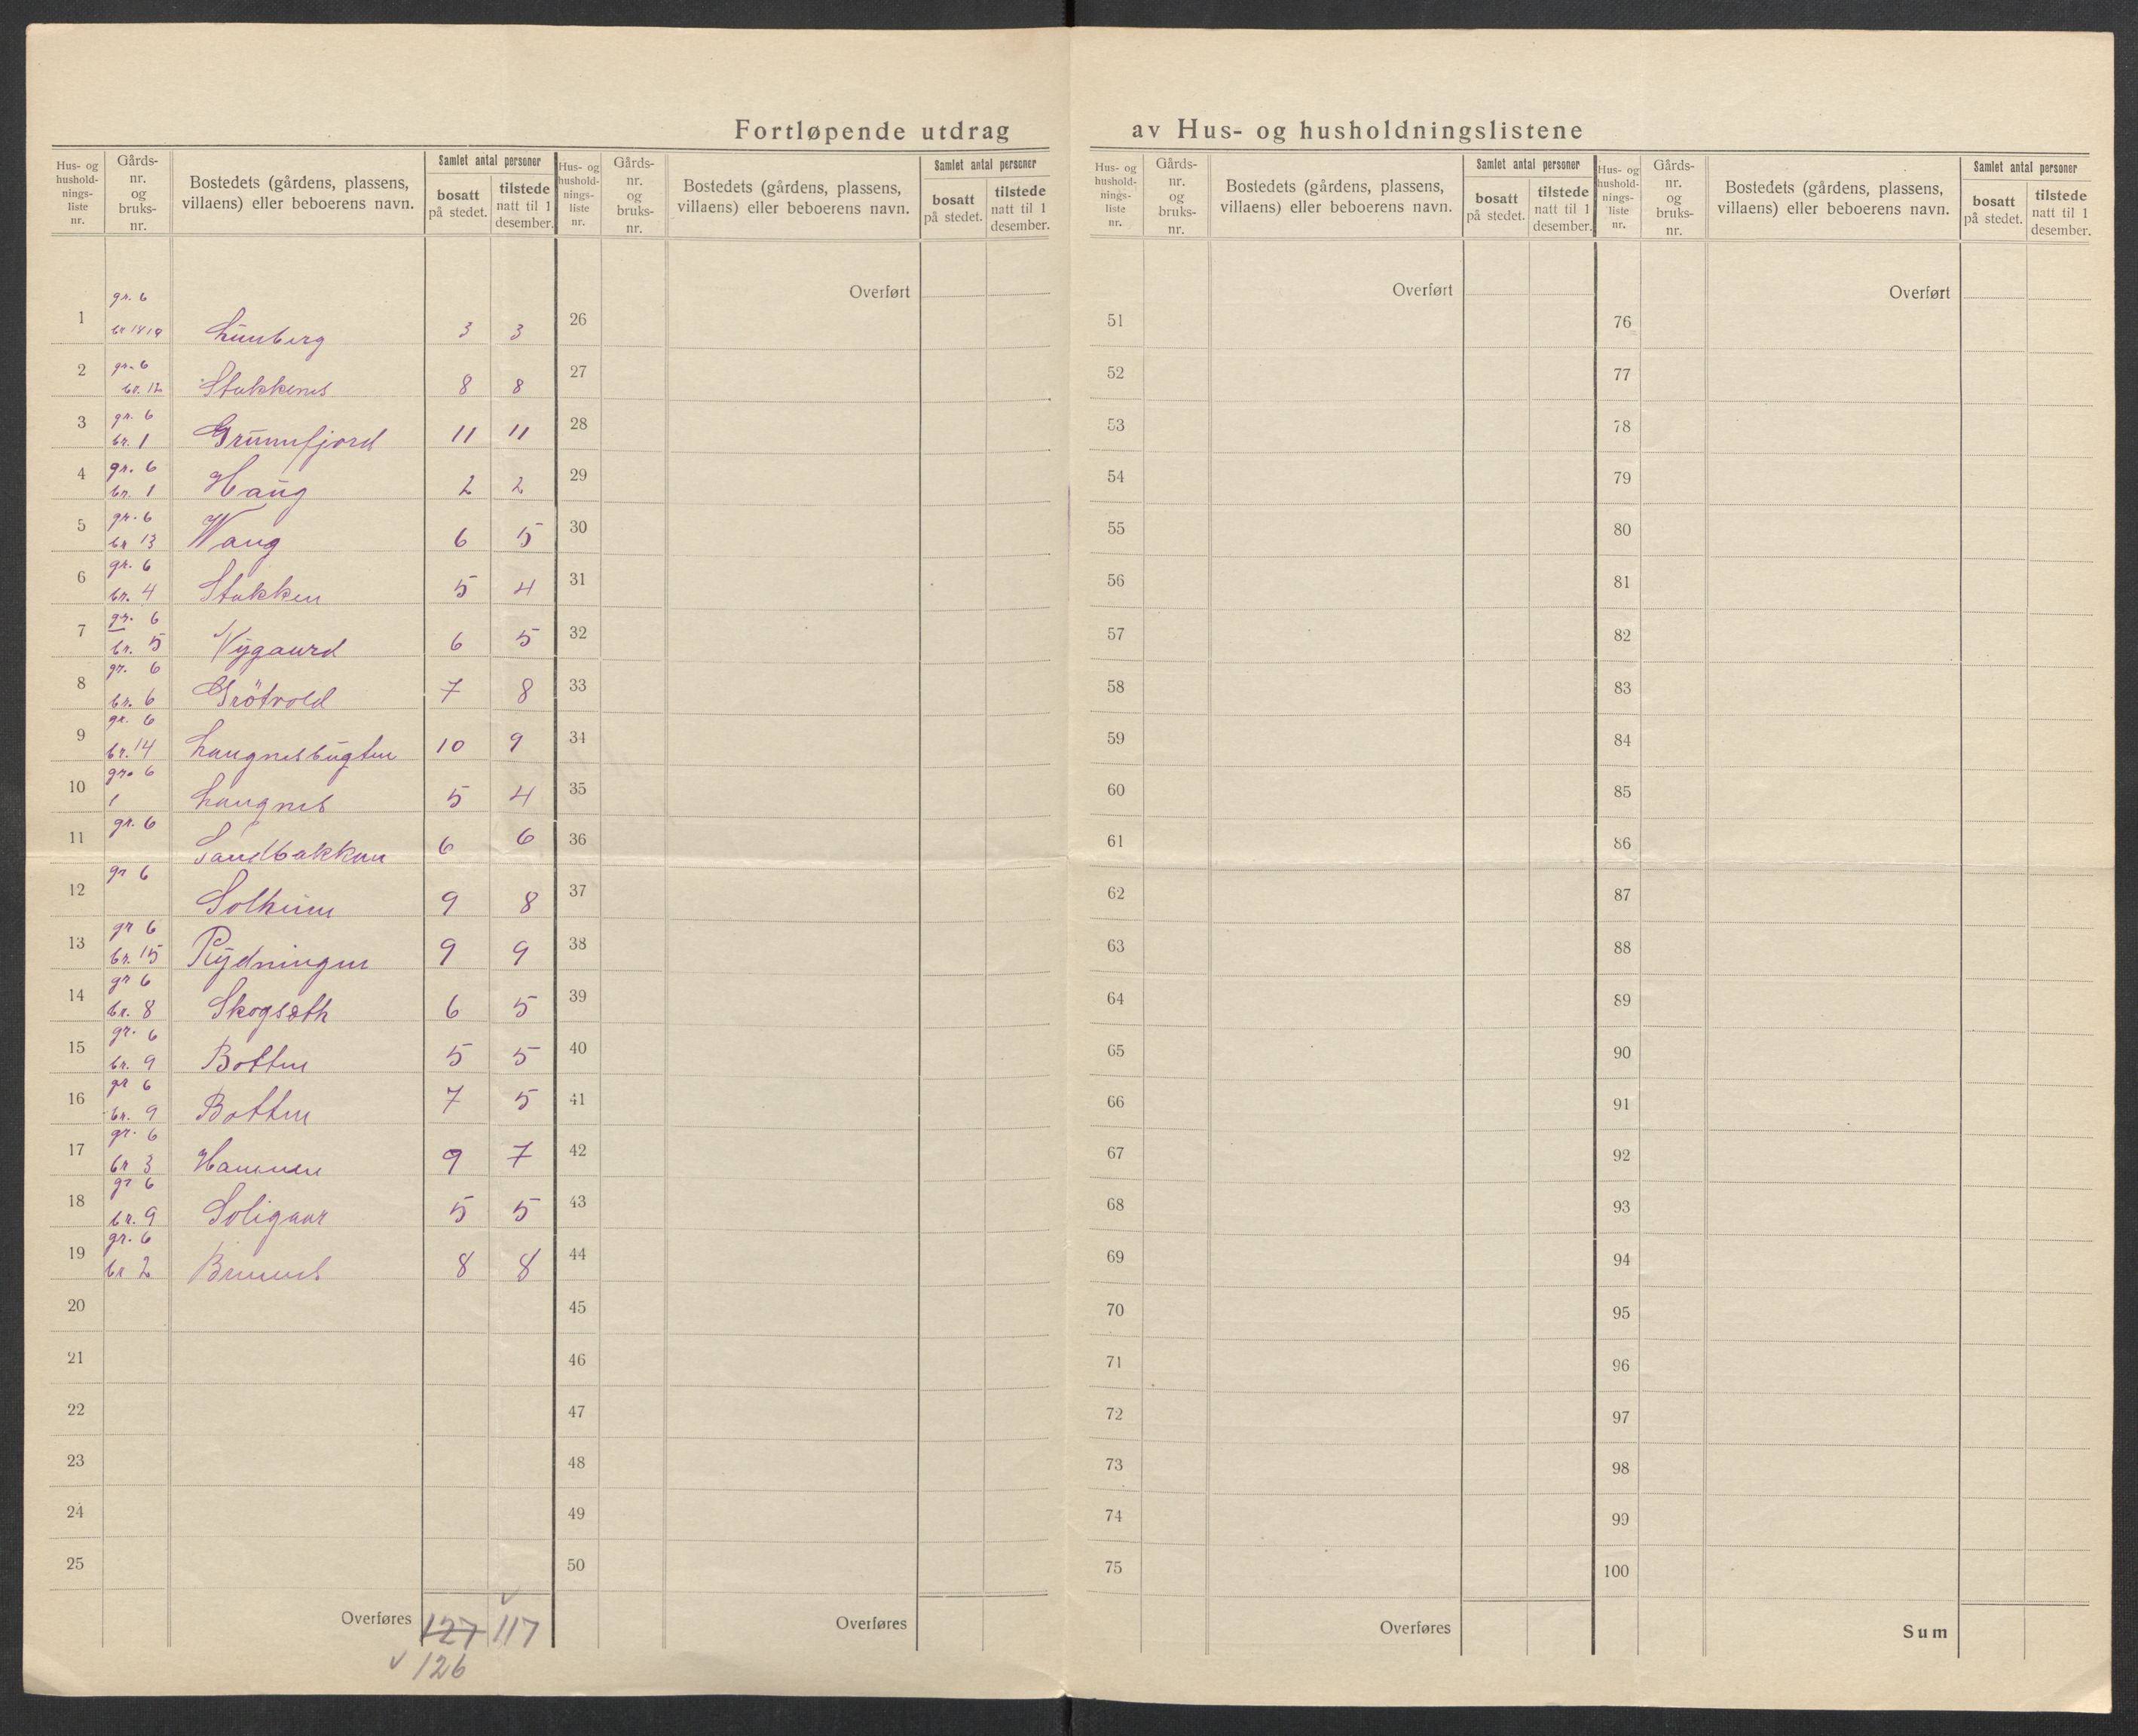 Fortløpende utdrag av Hus- og husholdningslistene
Hus- og hushold-nings-liste nr. Gårds-nr. og bruks-nr. Bostedets (gårdens, plassens, villaens) eller beboerens navn. Samlet antal personer bosatt på stedet. tilstede natt til 1 desember.
Hus- og hushold-nings-liste nr. Gårds-nr. og bruks-nr. Bostedets (gårdens, plassens, villaens) eller beboerens navn. Samlet antal personer bosatt på stedet. tilstede natt til 1 desember.
Hus- og hushold-nings-liste nr. Gårds-nr. og bruks-nr. Bostedets (gårdens, plassens, villaens) eller beboerens navn. Samlet antal personer bosatt på stedet. tilstede natt til 1 desember.
Hus- og hushold-nings-liste nr. Gårds-nr. og bruks-nr. Bostedets (gårdens, plassens, villaens) eller beboerens navn. Samlet antal personer bosatt på stedet. tilstede natt til 1 desember.
1 gr. 6 br 3 3
2 gr. 6 br. 12 Stakkenes 8 8
3 gr. 6 br. 1 Grunnfjord 11 11
4 gr. 6 br. 1 Haug 2 2
5 gr. 6 br 13 Wang 6 5
6 gr. 6 br. 4 Stakken 5 4
7 gr. 6 br. 5 Nygaard 6 5
8 gr. 6 br. 6 Grötvold 7 8
9 gr. 6 br. 14 Langnesbugten 10 9
10 gr. 6 1 Langnes 5 4
11 gr. 6 Sandbakken 6 6
12 gr 6 Solheim 9 8
13 gr 6 br. 15 Rydningen 9 9
14 gr 6 br. 8 Skogsæth 6 5
15 gr. 6 br. 9 Botten 5 5
16 gr 6 br. 9 Botten 7 5
17 gr. 6 br 3 Hammen 9 7
18 gr 6 br. 9 5 5
19 gr. 6 br 2 8 8
20
21
22
23
24
25
Overføres 127 117
126
Overført
26
27
28
29
30
31
32
33
34
35
36
37
38
39
40
41
42
43
44
45
46
47
48
49
50
Overføres
Overført
51
52
53
54
55
56
57
58
59
60
61
62
63
64
65
66
67
68
69
70
71
72
73
74
75
Overføres
Overført
76
77
78
79
80
81
82
83
84
85
86
87
88
89
90
91
92
93
94
95
96
97
98
99
100
Sum